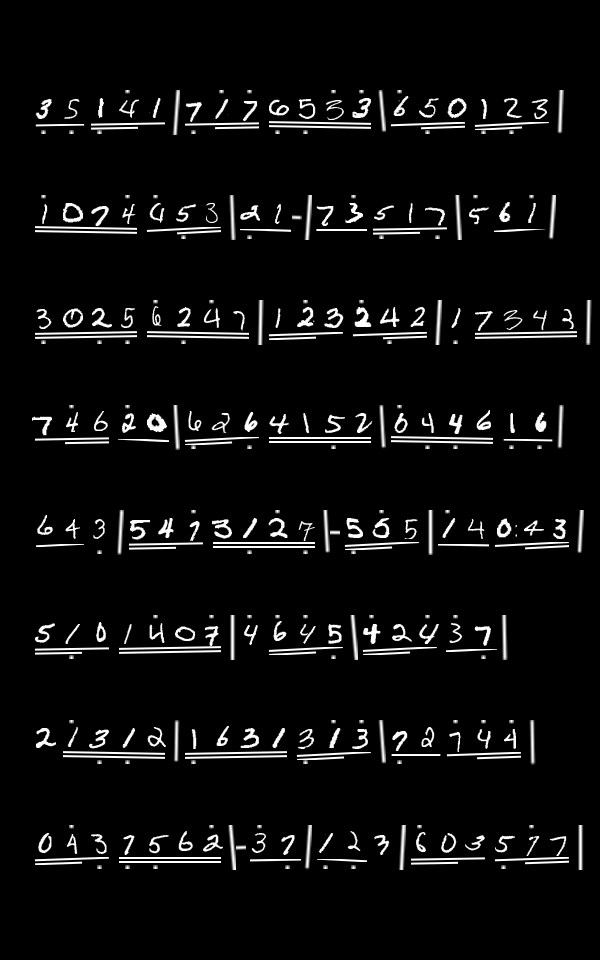 3 5 1 4 1 | 7 1 7 6 5 3 3 | 6 5 0 1 2 3 |
1 0 7 4 6 5 3 | 2 1 - | 7 3 5 1 7 | 5 6 1 |
3 0 2 5 6 2 4 7 | 1 2 3 2 4 2 | 1 7 3 4 3 |
7 4 6 2 0 | 6 2 6 4 1 5 2 | 0 4 4 6 1 6 |
6 4 3 | 5 4 7 3 1 2 7 | - 5 5 5 | 1 4 0 4 3 |
5 1 0 1 4 0 7 | 4 6 4 5 | 4 2 4 3 7 |
2 1 3 1 2 | 1 6 3 1 3 1 3 | 7 2 7 4 4 |
0 4 3 7 5 6 2 | - 3 7 | 1 2 3 | 6 0 3 5 7 7 |